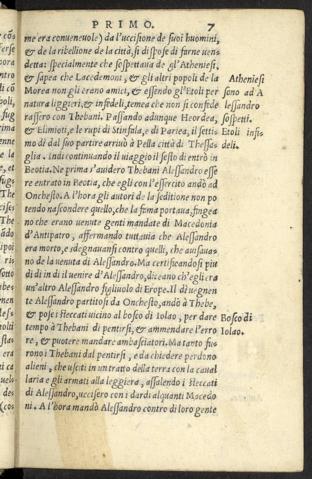 PRIMO. 7
me era conueneuole) da l'uccisione de suoi huomini,
& de la ribellione de la città, si dispose di farne uen
detta: specialmente che sospettaua de gl'Atheniesi.
& sapea che Lacedemoni, & gli altri popoli de la
Morea non gli erano amici, & essendo gl'Etoli per
natura liggieri, & infedeli, temea che non si confede
rassero con Thebani. Passando adunque Heordea,
& Elimioti, e le rupi di Stinfala, e di Pariea, il setti
mo di dal suo partire arriuò à Pella città di Thessa
glia. Indi continuando il uiaggio il sesto dì entrò in
Beotia. Ne prima s'auidero Thebani Alessandro esse
re entrato in Beotia, che egli con l'essercito andò ad
Onchesto. A l'hora gli autori de la seditione non po
tendo nascondere quello, che la fama portaua, fingea
no che erano uenute genti mandate di Macedonia
d'Antipatro, affermando tuttauia che Alessandro
era morto, e sdegnauansi contro quelli, che auisaua=
no de la uenuta di Alessandro. Ma certificandosi piu
di dì in dì il uenire d'Alessandro, diceano ch'egli era
un'altro Alessandro figliuolo di Erope. Il dì uegnen
te Alessandro partitosi da Onchesto, andò à Thebe,
& posei steccati uicino al bosco di Iolao, per dare
tempo à Thebani di pentirsi, & ammendare l'erro
re, & puotere mandare ambasciatori. Ma tanto fu=
rono i Thebani dal pentirsi, e da chiedere perdono
alieni, che usciti in un tratto della terra con la caual
laria e gli armati alla leggiera, assalendo i steccati
di Alessandro, uccisero con i dardi alquanti Macedo
ni. A l'hora mandò Alessandro contro di loro gente
Atheniesi
sono ad A
lessandro
sospetti.
Etoli infi=
deli.
Bosco di
Iolao.